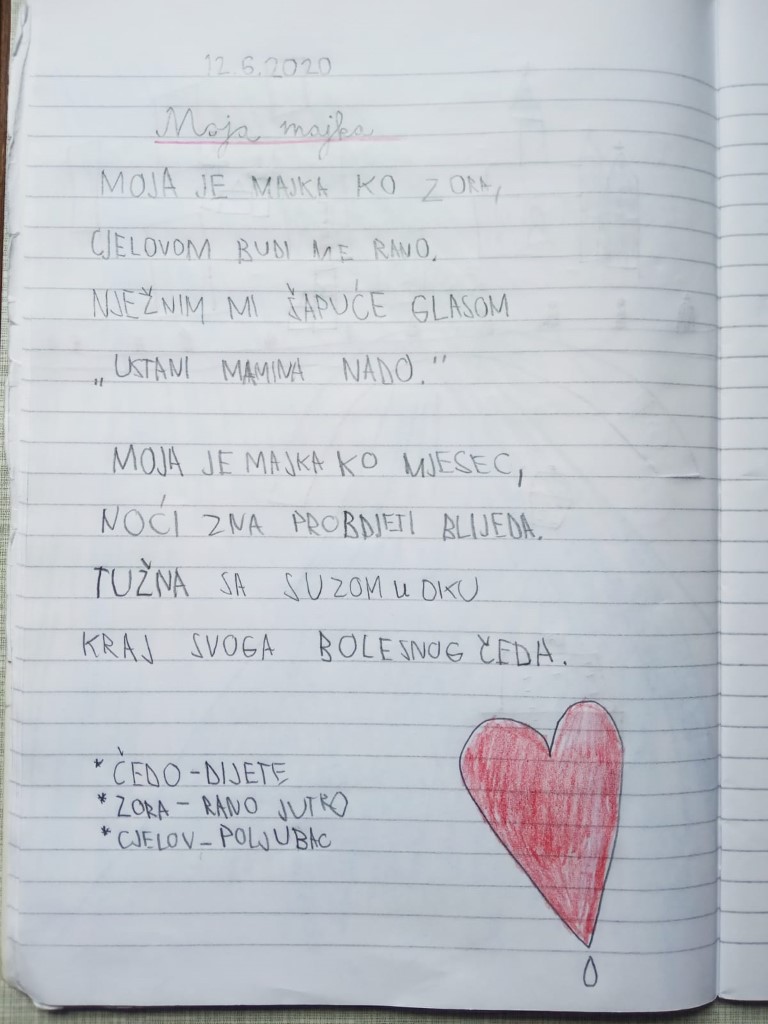 12.6.2020
Moja majka
MOJA JE MAJKA KO ZORA,
CJELOVOM BUDI ME RANO.
NJEŽNIM MI ŠAPUĆE GLASOM
„USTANI MAMINA NADO."
MOJA JE MAJKA KO MJESEC,
NOĆI ZNA PROBDJETI BLIJEDA.
TUŽNA SA SUZOM u OKU
KRAJ SVOGA BOLESNOG ČEDA.
* ČEDO - DIJETE
* ZORA - RANO JUTRO
* CJELOV - POLJUBAC